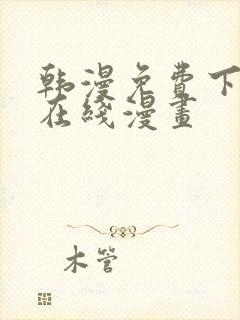 韩漫免费下
在线漫畫
木管